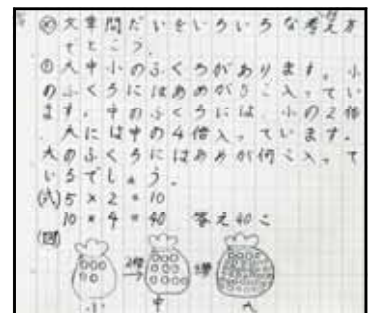 め 文章問だいをいろいろな考え方
でとこう。
① 大中小のふくろがあります。小
のふくろにはあめが5こ入ってい
ます。中のふくろには、小の2倍
、大には中の4倍入っています。
大のふくろにはあめが何こ入って
いるでしょう。
(式) 5 × 2 = 10
10 × 4 = 40 答え40こ
(図)
2倍 4倍
小 中 大